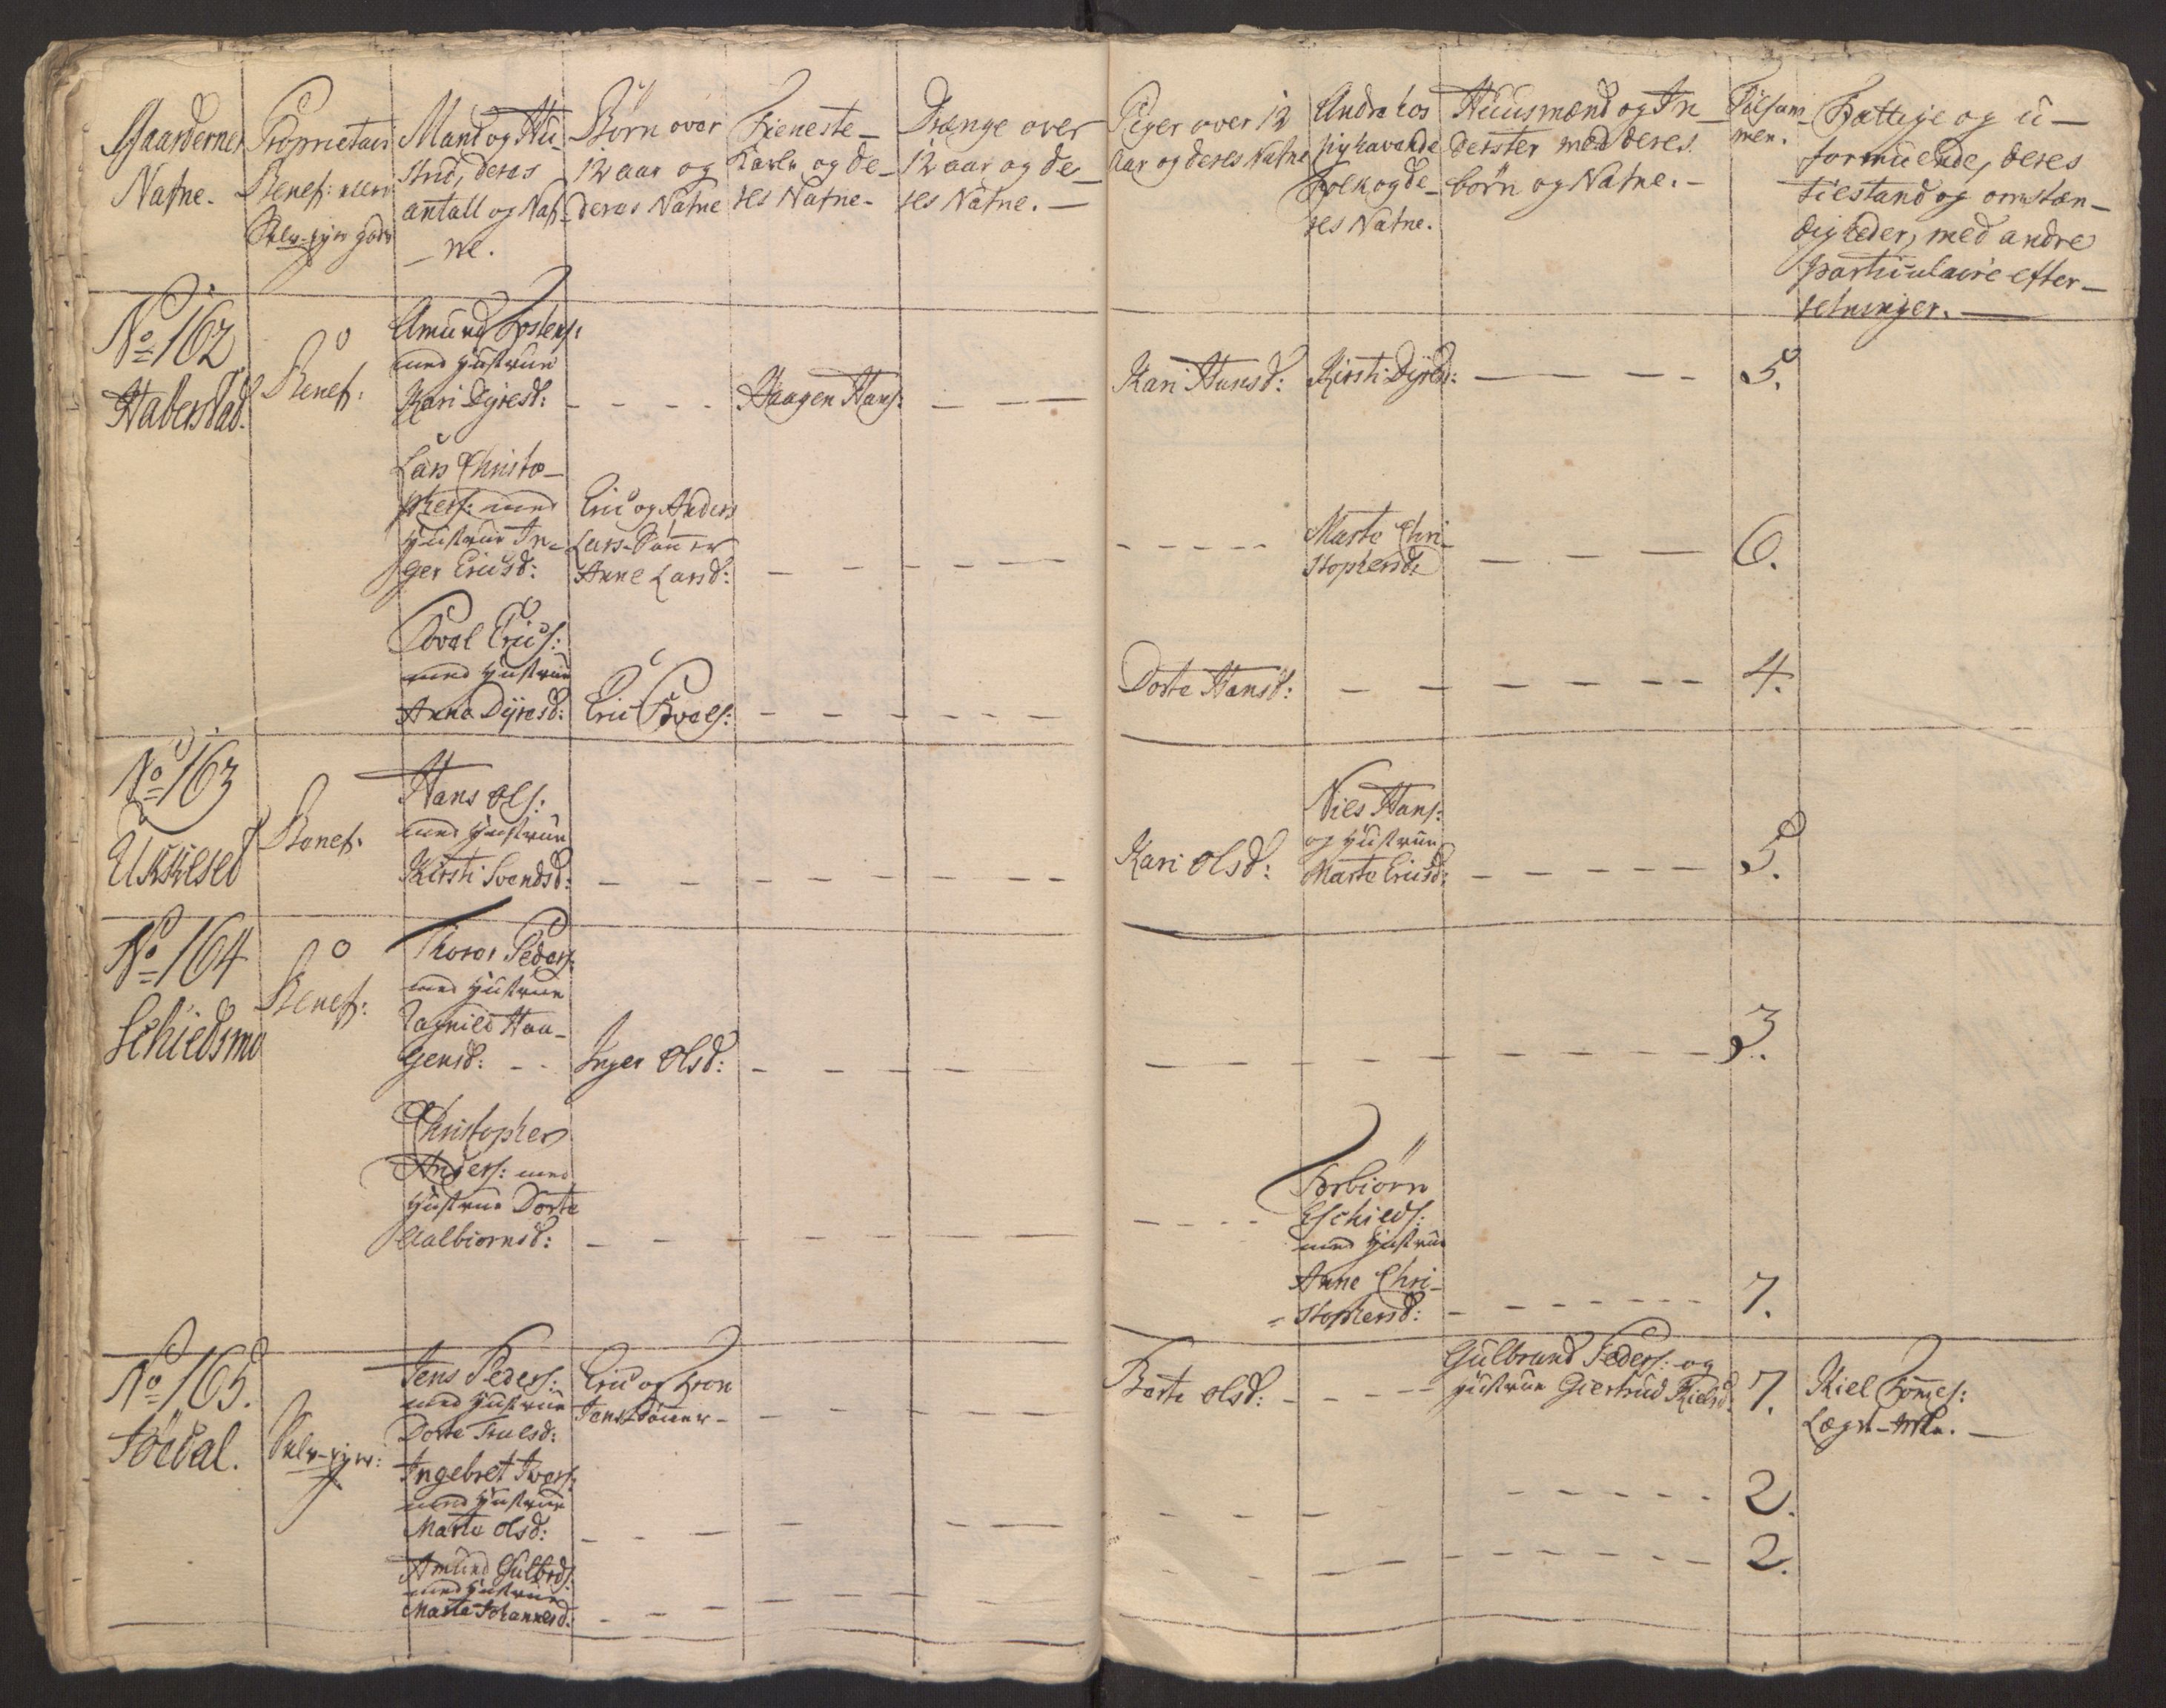 Gaardernes
Nafne.
Proprietair
Benef: eller
Selv-eyer gods
Mand og Hu-
strue, deres
antall og Naf-
ne.
Børn over
12 aar og
deres Nafne
Tieneste-
Karle og de-
res Nafne-
Drænge over
12 aar og de-
res Nafne.
Piger over 12
aar og deres Nafne
Andre hos
sig havende
Folk og de-
res Nafne.
Huusmænd og In-
derster med deres
børn og Nafne.
Tilsam-
men.
Fattige og u-
formuende, deres
tilstand og omstæn-
digheder, med andre
particulaire efter-
retninger.
No 162
Haberstad.
Benef:
Amund Jostens:
med hustrue
Kari Dyresd:
Haagen Hans:
Kari Hansd:
Kirsti Dyresd:
5.
Lars Christo-
phers: med
hustrue In-
ger Ericsd:
Eric og Anders
Lars-Sønner
Anne Larsd:
Marte Chri-
stophersd:
6.
Povel Erics:
med hustrue
Anne Dyresd:
Eric Povels:
Dorte Hansd:
4.
No 163
Ukkiesed
Benef:
Hans Ols:
med hustrue
Kirsti Svendsd:
Kari Olsd:
Niels Hans:
og hustrue
Marte Ericsd:
5.
No 164
Schiedsmo
Benef:
Thorer Peders:
med hustrue
Ragnild Haa-
gensd:
Inger Olsd:
3.
Christopher
Anders: med
hustrue Dorte
Aalbiørnsd:
Torbiørn
Eschilds:
med hustrue
Anne Chri-
stophersd:
7.
No 165.
Søedal.
Selv-eyer:
Jens Peders:
med hustrue
Dorte Truesd:
Eric og Tron
Jens Sønner
Berte Olsd:
Gulbrand Peders: og
hustrue Giertrud Kielsd:
7.
Kiel Tommes:
Lægd-
Ingebret Ivers:
med hustrue
Marte Olsd:
2.
Amund Gulbrds:
med hustrue
Marte Johannesd:
2.